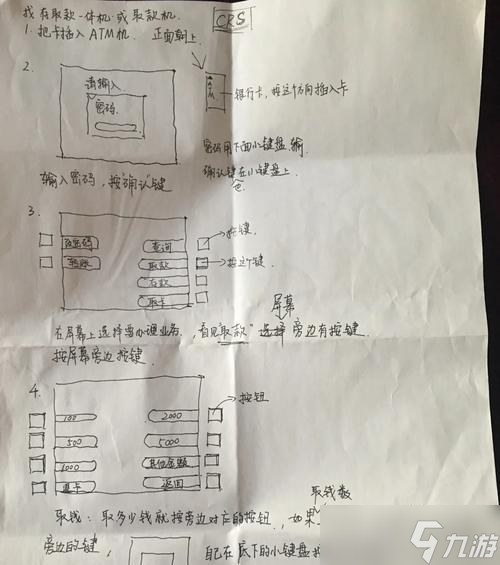 找存取款一体机或取款机.
CRS
1.把卡插入ATM机. 正面朝上.
2.
请输入
密码
银行卡,按这个方向插入卡
密码用下面小键盘输.
确认键在小键盘上.
输入密码,按"确认"键
3.
改密码
查询
按键.
转账
取款
按这个键.
存款
取卡
屏幕
在屏幕上选择要办理业务.,看见"取款"选择旁边有按键.
按屏幕旁边按键.
4.
100
2000
按钮
500
5000
1000
其他金额
退卡
返回
取钱数
取钱:取多少钱就按旁边对应的按钮,如果
旁边的键,
自己在底下的小键盘按
九游